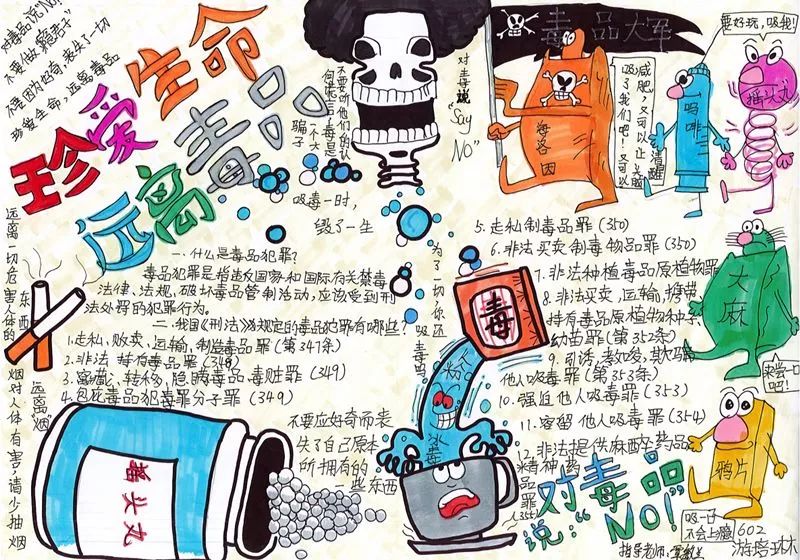 对毒品说"No!"
不要做"瘾君子"
不要因为好奇,丧失了一切
珍爱生命,远离毒品
珍爱生命
远离毒品
不要听他们的认
何谎言!毒是
一个大
骗子
对毒说
"Say
NO"
吸毒一时,
毁了一生
毒品大军
海洛因
减肥,又可以止
吸了我们吧!又可以
清醒
要好玩,吸我!
吗啡
摇头丸
大麻
来尝一口吧
鸦片
吸一口
不会上瘾
远离一切危害人体的
东西
远离烟
烟对人体有害,请少抽烟
一.什么是毒品犯罪?
毒品犯罪是指违反国家和国际有关禁毒
法律、法规,破坏毒品管制活动,应该受到刑
法处罚的犯罪行为。
二.我国《刑法》规定的毒品犯罪有哪些?
1.走私、贩卖、运输、制造毒品罪(第347条)
2.非法持有毒品罪(348)
3.窝藏、转移、隐瞒毒品毒赃罪(349)
4.包庇毒品犯罪分子罪(349)
5.走私制毒品罪(350)
6.非法买卖制毒物品罪(350)
7.非法种植毒品原植物罪
8.非法买卖、运输、携带、
持有毒品原植物种子、
幼苗罪(第352条)
9.引诱、教唆、欺骗
他人吸毒罪(第353条)
10.强迫他人吸毒罪(353)
11.容留他人吸毒罪(354)
12.非法提供麻醉药品
精神药
品罪
(355)
为了一切你还
吸毒吗?
毒
冰毒
摇头丸
不要应好奇而丧
失了自己原本
所拥有的
一些东西
对毒品
说:"NO!"
602
指导老师: